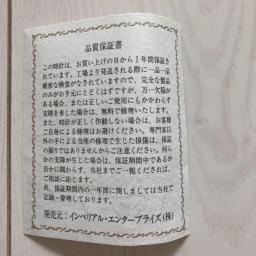 品質保証書
この時計は、お買い上げの日から1年間保証さ
れています。工場より発送される際に一品一品
厳密な検査がなされていますので、完全な製品
のみがお手元にとどくはずですが、万一欠陥が
ある場合、または正しいご使用にもかかわらず
支障を来した場合は、無料で修理いたします。
また、時計が正しく作動しない場合は、お客様
ご自身による修理はお避けください。専門家以
外の手による当座の修理で生じた損傷は、保証
の限りではありませんからご注意ください。何ら
かの支障が生じた場合は、保証期間中であるか
否かに関わらず、当社までご一報くだされば、
ご相談に応じます。
尚、保証期間内の一年間に関しましては当社で
記録・管理しております。
発売元：インペリアル・エンタープライズ(株)